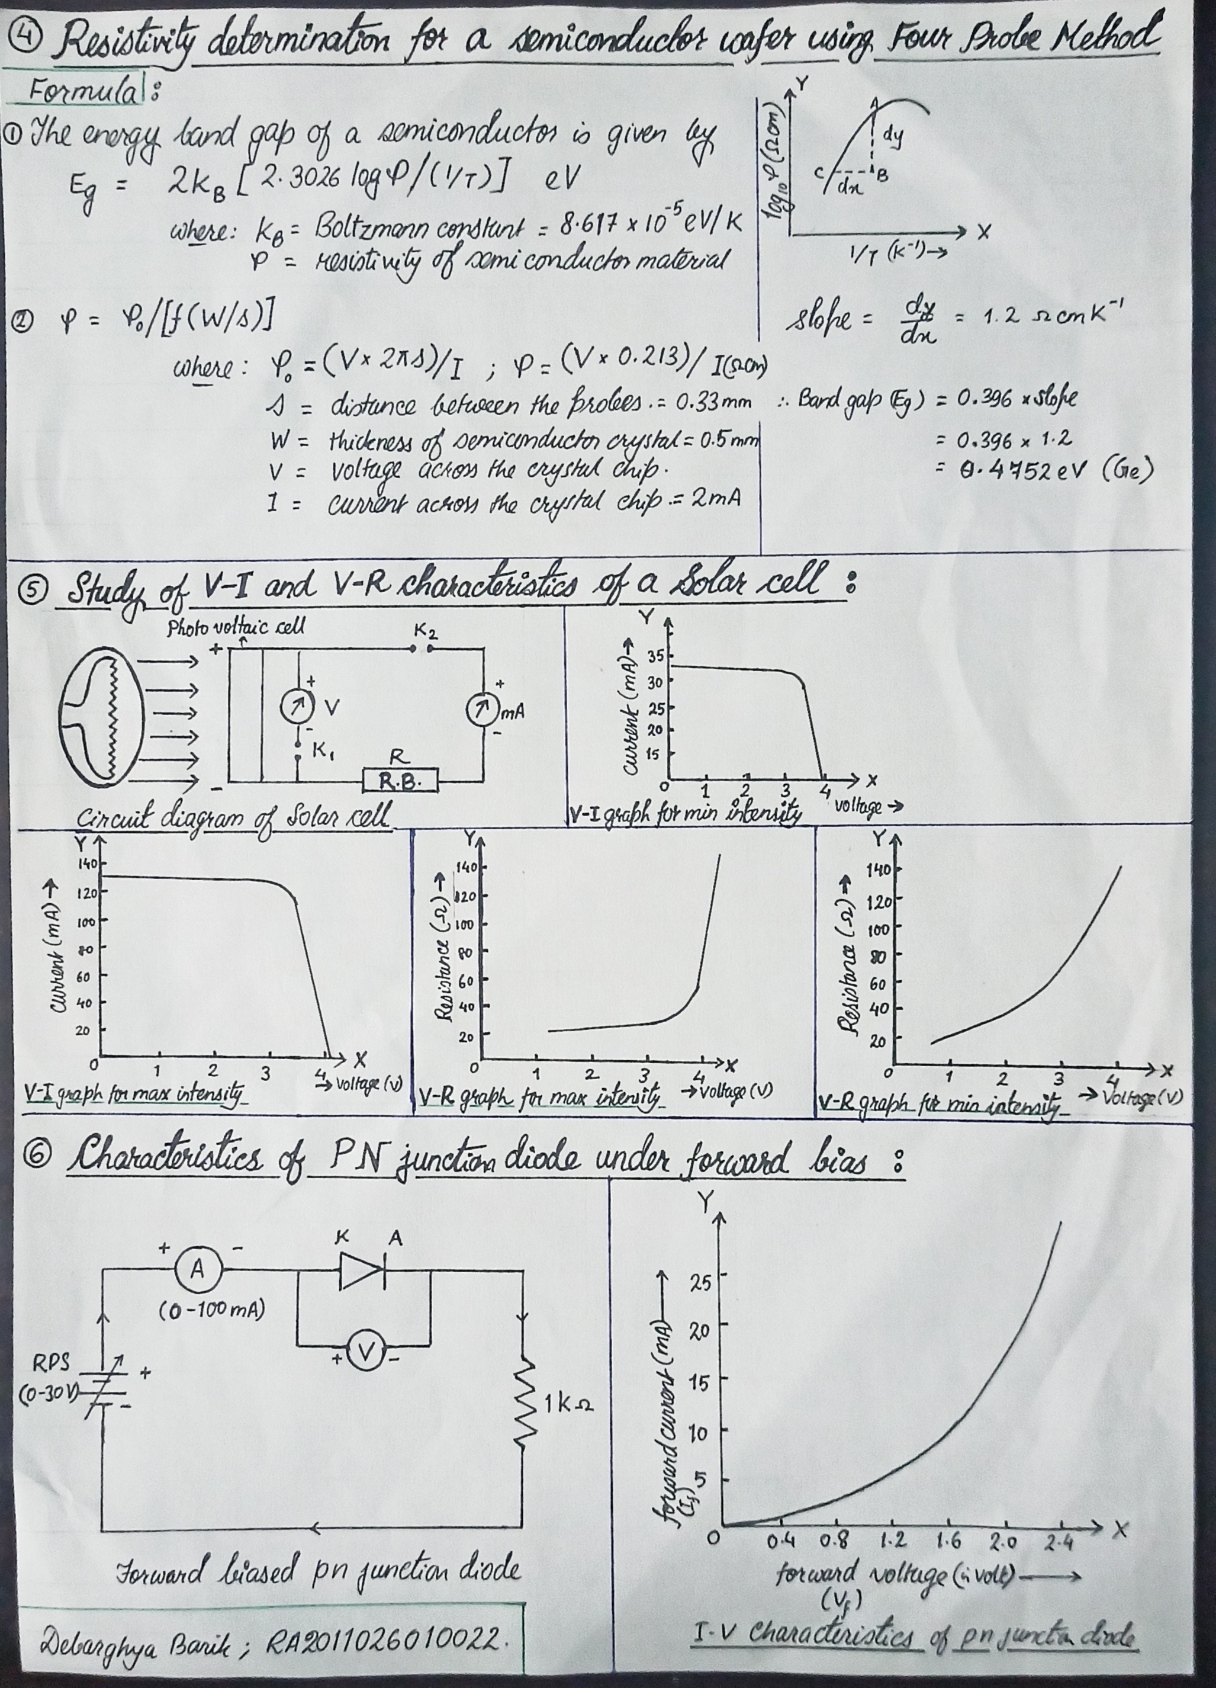 ④ Resistivity determination for a semiconductor wafer using Four Probe Method
Formula:
① The energy band gap of a semiconductor is given by
Eg = 2KB [2.3026 logρ/(1/T)] eV
where: KB = Boltzmann constant = 8.617 × 10⁻⁵ eV/K
ρ = resistivity of semiconductor material
② ρ = ρ₀/[f(W/s)]
where: ρ₀ = (V × 2πs)/I ; ρ = (V × 0.213)/I(Ωcm)
s = distance between the probes. = 0.33mm
W = thickness of semiconductor crystal = 0.5mm
V = voltage across the crystal chip.
I = current across the crystal chip. = 2mA
Y
log₁₀ρ (Ωcm)
A
dy
C
dx
B
X
1/T (K⁻¹)→
slope = dy/dx = 1.2 ΩcmK⁻¹
∴ Band gap (Eg) = 0.396 × slope
= 0.396 × 1.2
= 0.4752 eV (Ge)
⑤ Study of V-I and V-R characteristics of a Solar cell :
Photo voltaic cell
K2
+
-
+
V
-
K1
+
mA
-
R
R.B.
Circuit diagram of Solar cell
Y
Current (mA) →
35
30
25
20
15
0 1 2 3 4 X
voltage →
V-I graph for min intensity
Y
Current (mA) →
140
120
100
80
60
40
20
0 1 2 3 4 X
→ voltage (V)
V-I graph for max intensity
Y
Resistance (Ω) →
140
120
100
80
60
40
20
0 1 2 3 4 X
→ voltage (V)
V-R graph for max intensity
Y
Resistance (Ω) →
140
120
100
80
60
40
20
0 1 2 3 4 X
→ Voltage (V)
V-R graph for min intensity
⑥ Characteristics of PN junction diode under forward bias :
+ A -
(0-100 mA)
K A
+ V -
RPS
(0-30V)
+
-
1kΩ
Forward biased pn junction diode
Y
forward current (mA) →
(If)
25
20
15
10
5
0 0.4 0.8 1.2 1.6 2.0 2.4 X
forward voltage (in volt) →
(Vf)
I-V Characteristics of pn junction diode
Debarghya Barik ; RA2011026010022.